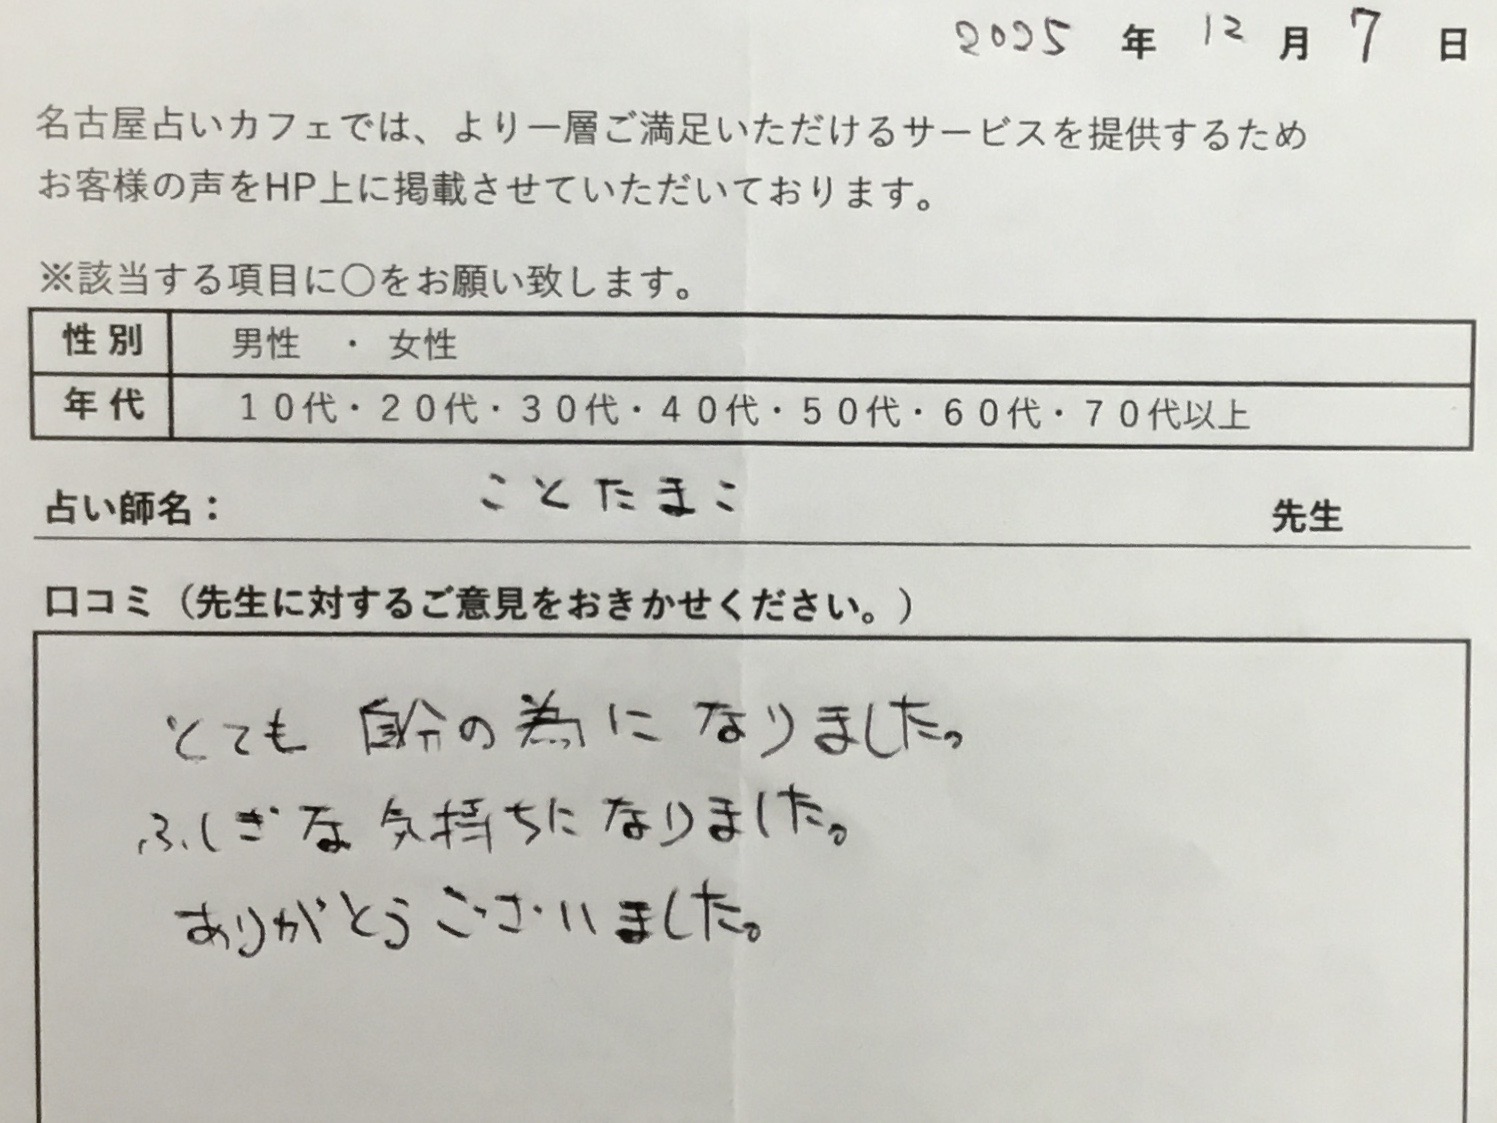 2025 年 12 月 7 日
名古屋占いカフェでは、より一層ご満足いただけるサービスを提供するため
お客様の声をHP上に掲載させていただいております。
※該当する項目に〇をお願い致します。
性別 男性 ・ 女性
年代 10代・20代・30代・40代・50代・60代・70代以上
占い師名： ことたまこ 先生
口コミ（先生に対するご意見をおきかせください。）
とても 自分の為に なりました。
ふしぎな 気持ちに なりました。
ありがとう ございました。